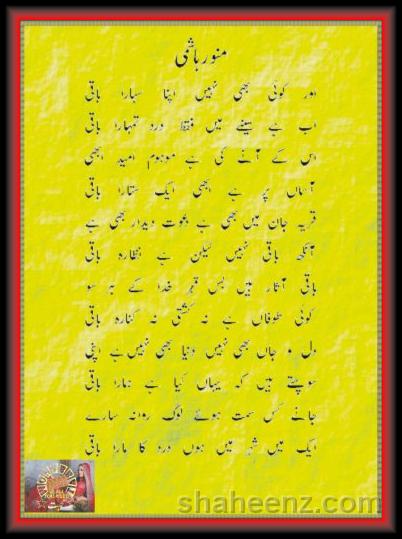 منور ہاشمی
اور کوئی بھی نہیں اپنا سہارا باقی
اب ہے سینے میں فقط درد تمہارا باقی
اس کے آنے کی ہے موہوم امید ابھی
آسماں پر ہے ابھی ایک ستارا باقی
قریہ جان میں بھی ہے دعوت دیدار بھی ہے
آنکھ باقی نہیں لیکن ہے نظارہ باقی
باقی آثار ہیں بس قہر خدا کے ہر سو
کوئی طوفاں ہے نہ کشتی نہ کنارہ باقی
دل و جاں بھی نہیں دنیا بھی نہیں ہے اپنی
سوچتے ہیں کہ یہاں کیا ہے ہمارا باقی
جانے کس سمت ہوئے لوگ روانہ سارے
ایک میں شہر میں ہوں درد کا مارا باقی
shaheenz.com